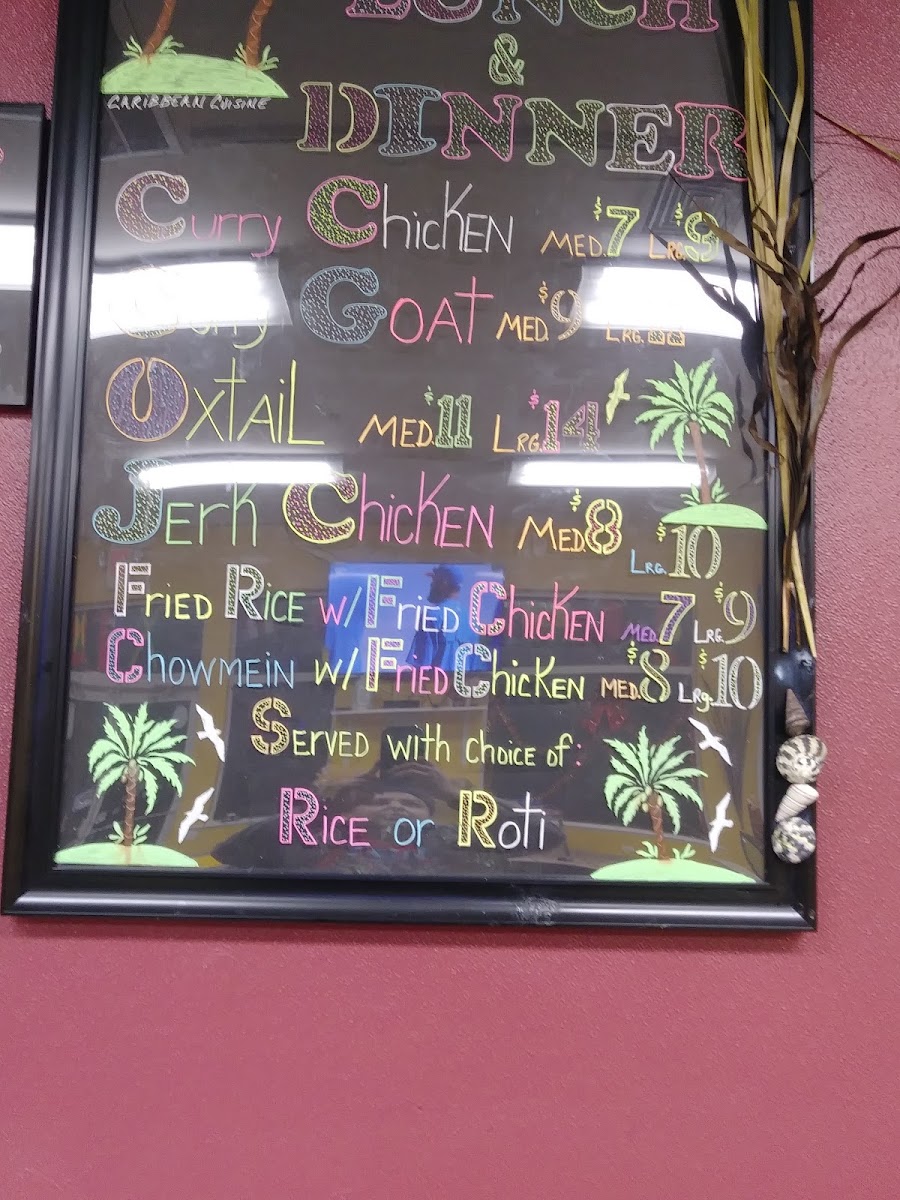 LUNCH
&
CARIBBEAN CUISINE
DINNER
Curry Chicken MED. $7 LRG. $9
Curry GOAT MED. $9 LRG.
OxtaiL MED. $11 LRG. $14
Jerk Chicken MED. $8 LRG. $10
Fried Rice w/ Fried Chicken MED. 7 LRG. $9
Chowmein w/ Fried Chicken MED. $8 Lrg. $10
Served with choice of:
Rice or Roti